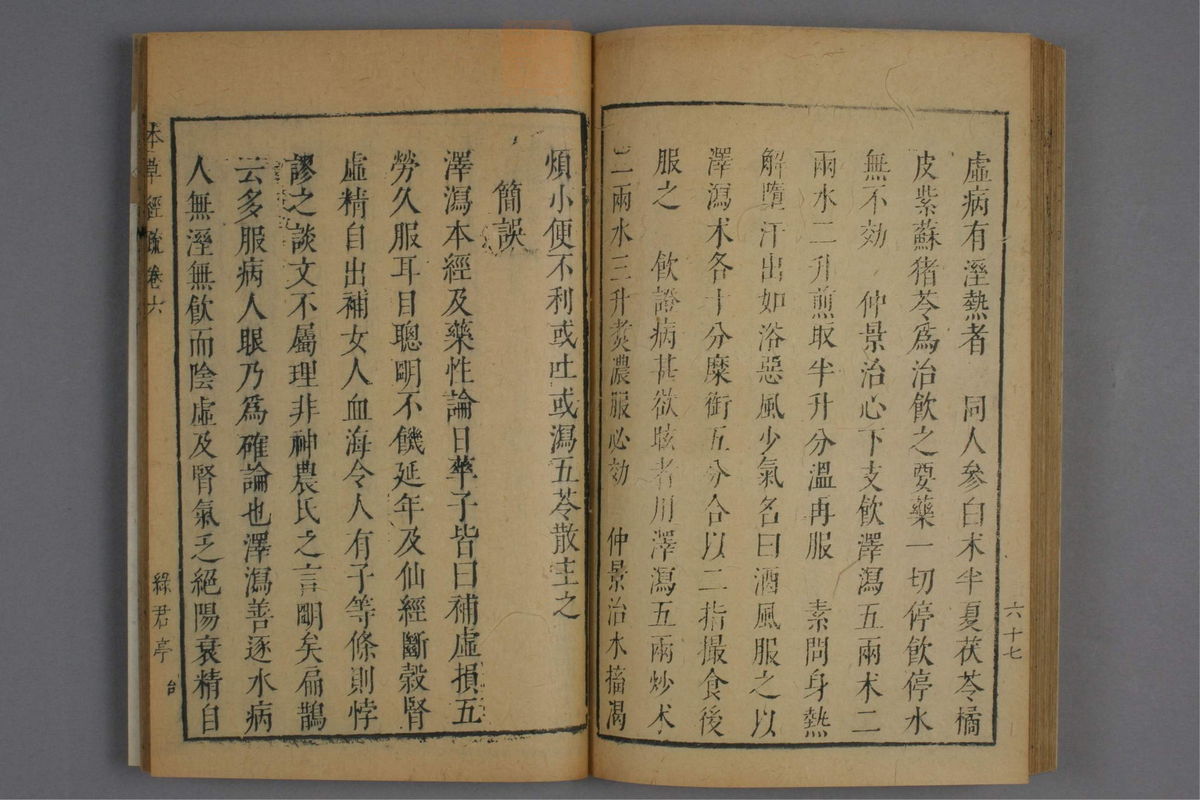 虛病有溼熱者　同人參白朮半夏茯苓橘
皮紫蘇猪苓爲治飲之要藥一切停飲停水
無不効　仲景治心下支飲澤瀉五兩朮二
兩水二升煎取半升分溫再服　素問身熱
解墮汗出如浴惡風少氣名曰酒風服之以
澤瀉朮各十分麋銜五分合以二指撮食後
服之　飲證病甚欲咳者用澤瀉五兩炒朮
二兩水三升煑濃服必効　仲景治水搐渴
六十七
煩小便不利或吐或瀉五苓散主之
簡誤
澤瀉本經及藥性論日華子皆曰補虛損五
勞久服耳目聰明不饑延年及仙經斷穀腎
虛精自出補女人血海令人有子等條則悖
謬之談文不屬理非神農氏之言明矣扁鵲
云多服病人眼乃爲確論也澤瀉善逐水病
人無溼無飲而陰虛及腎氣乏絕陽衰精自
本草經疏卷六
綠君亭